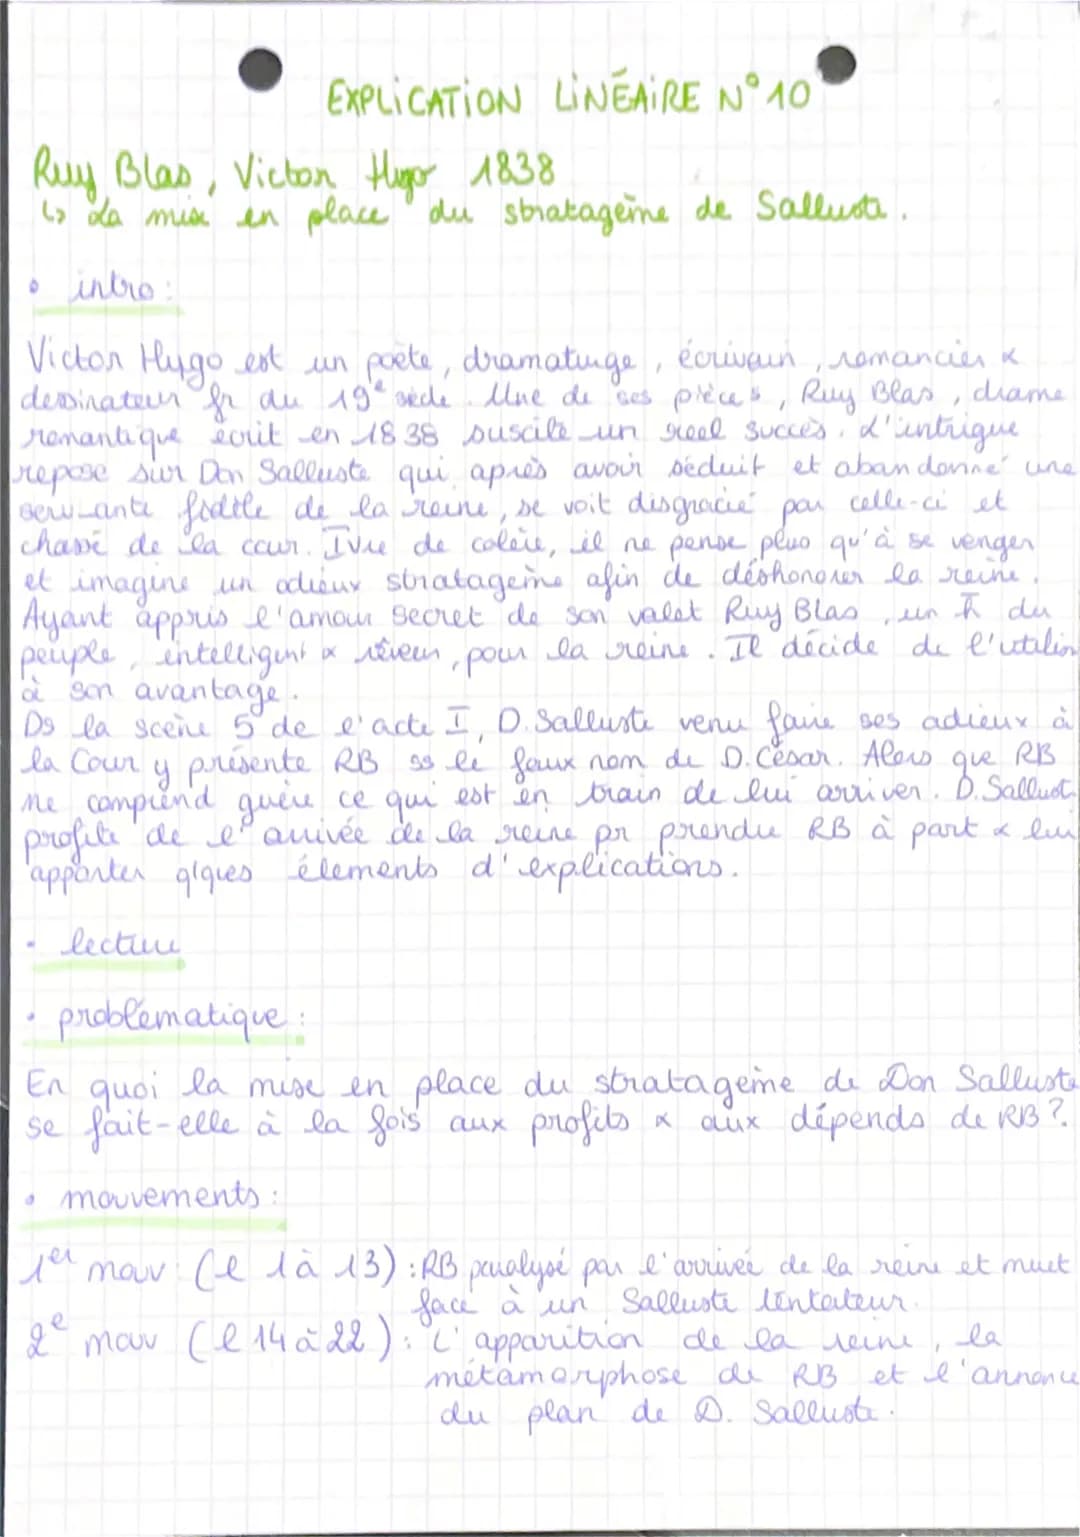 EXPLICATION LINÉAIRE N°10
Ruy Blas, Victor Hugo 1838
↳ La mise en place du stratagème de Salluste.
• intro :
Victor Hugo est un poète, dramaturge, écrivain, romancier &
dessinateur fr du 19e siècle. Une de ses pièces, Ruy Blas, drame
romantique écrit en 1838 suscite un réel succès. L'intrigue
repose sur Don Salluste qui après avoir séduit et abandonné une
servante fidèle de la reine, se voit disgracié par celle-ci et
chassé de la cour. Ivre de colère, il ne pense plus qu'à se venger
et imagine un odieux stratagème afin de déshonorer la reine.
Ayant appris l'amour secret de son valet Ruy Blas, un h du
peuple, intelligent & rêveur, pour la reine. Il décide de l'utiliser
à son avantage.
Ds la scène 5 de l'acte I, D. Salluste venu faire ses adieux à
la Cour y présente RB ss le faux nom de D. César. Alors que RB
ne comprend guère ce qui est en train de lui arriver. D. Sallust
profite de l'arrivée de la reine pr prendre RB à part & lui
apporter qlques élements d'explications.
• lecture
• problématique :
En quoi la mise en place du stratagème de Don Salluste
se fait-elle à la fois aux profits & aux dépends de RB ?
• mouvements :
1er mouv (l 1 à 13) : RB paralysé par l'arrivée de la reine et muet
face à un Salluste tentateur.
2e mouv (l 14 à 22) : L'apparition de la reine, la
métamorphose de RB et l'annonce
du plan de D. Salluste.